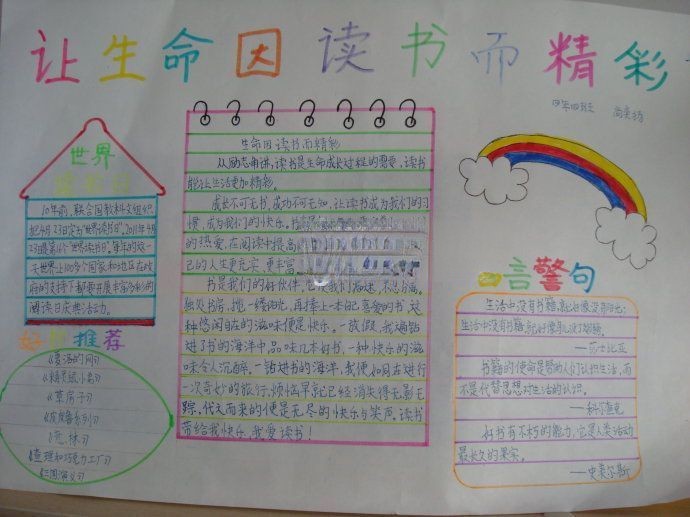 让生命因读书而精彩
世界
10年前,联合国教科文组织
把4月23日定为"世界读书日"。2011年4月
23日是第16个"世界读书日"。每年的这一
天世界上100多个国家和地区在政
府的支持下都要开展丰富多彩的
阅读日庆典活动。
好书推荐
《草房子》
《童林》
《查理和巧克力工厂》
《三国演义》
生命因读书而精彩
从励志角讲,读书是生命成长过程的需要,读书
能让生活更加精彩。
成长不可无书,成功不可无知,让读书成为我们的习
惯,成为我们的快乐。
的热爱,在阅读中提高
己的人生更充实,更丰富
书是我们的好伙伴,
独处书房,揽一缕阳光,再捧上一本自己喜爱的书,这
种悠闲自在的滋味便是快乐。一放假,我遍钻
进了书的海洋中,品味几本好书,一种快乐的滋
味令人沉醉。一钻进书的海洋,我便如同在进行
一次奇妙的旅行,烦恼早就已经消失得无影无
踪,代之而来的便是无尽的快乐与笑声。读书
带给我快乐,我爱读书!
四年四班
名言警句
生活中没有书籍,就好像没有阳光;
生活中没有书籍,就好像鸟儿没了翅膀。
——莎士比亚
书籍的使命是帮助人们认识生活,而
不是代替思想对生活的认识。
——科尔查克
好书有不朽的能力,它是人类活动
最长久的果实。
——史美尔斯